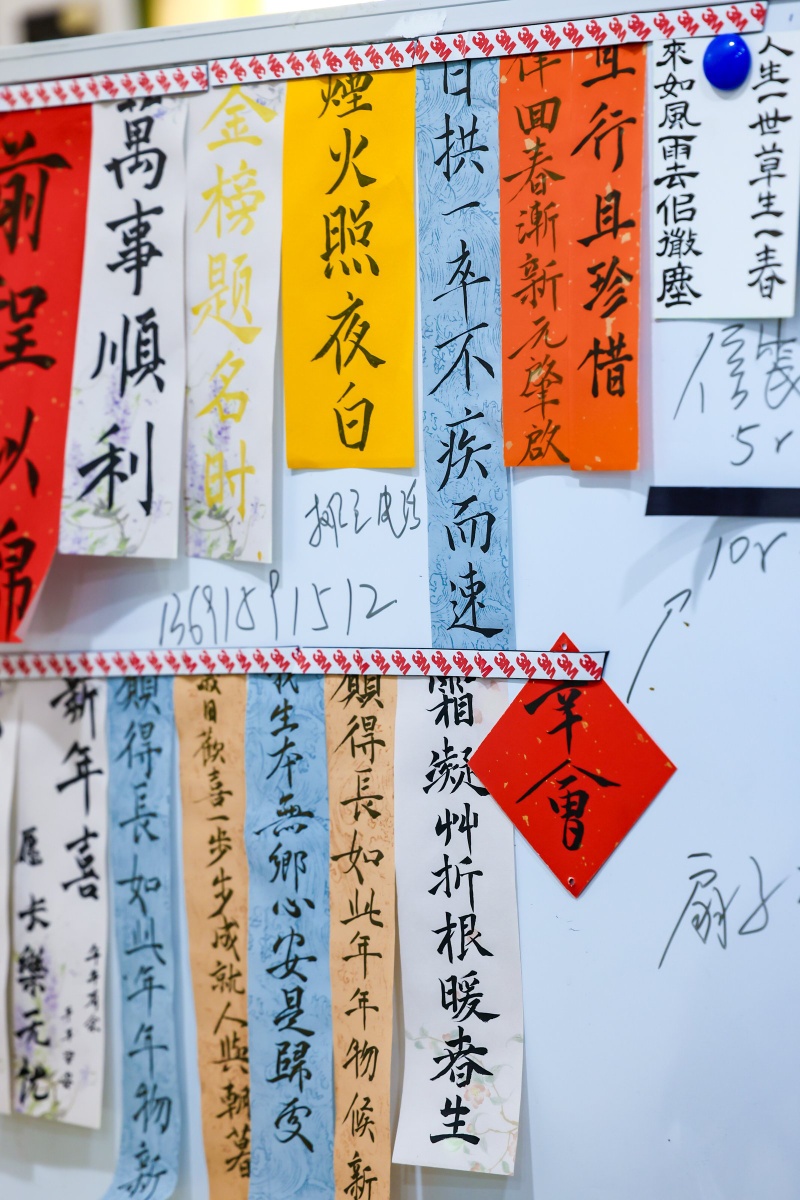 前程似锦
萬事順利
金榜题名时
煙火照夜白
日拱一卒不疾而速
回春漸新元肇啟
且行且珍惜
人生一世草生一春
來如風雨去侣微塵
信
5r
10r
13691591512
新年喜
卡樂无忧
願得長如此年年物新
日歡喜一步步成就人與朝暮
我生本無鄉心安是歸处
願得長如此年年物候新
霜凝艸折根暖春生
幸會
扇子